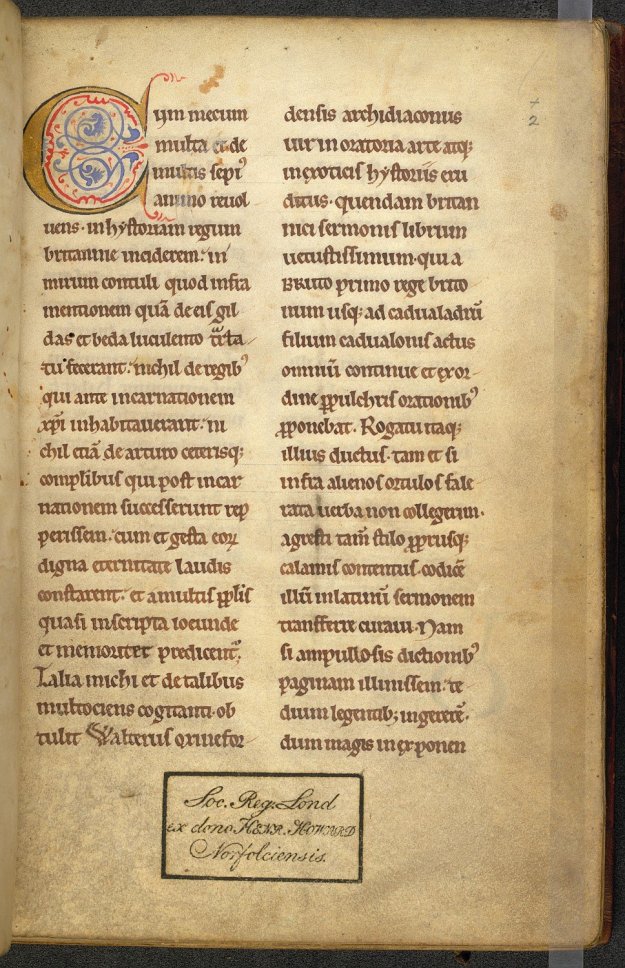 Cum mecum
multa et de
multis sepi᾽
animo reuol
uens. in hystoriam regum
britannie inciderem: in
mirum contuli quod infra
mentionem quā de eis gil
das et beda luculento tͣcta
tu fecerant: nichil de regib᾽
qui ante incarnationem
xp̄i inhabitauerant: ni
chil etiā de arturo ceterisq;
complībus qui post incar
nationem successerunt rep
perissem. cum et gesta eoꝝ
digna eternitate laudis
constarent: et a multis pplīs
quasi inscripta iocunde
et memoriter predicentᷣ.
Talia michi et de talibus
multociens cogitanti. ob
tulit Walterus oxinefor
densis archidiaconus
uir in oratoria arte atq;
in exoticis hystoriis eru
ditus. quendam britan
nici sermonis librum
uetustissimum. qui a
BRUTO primo rege brito
num usq; ad cadualadrū
filium cadualonis actus
omniū continue et ex or
dine ꝑpulchris orationib᾽
ꝓponebat. Rogatu itaq;
illius ductus. tam et si
infra alienos ortulos fale
rata uerba non collegerim.
agresti tam̄ stilo ꝓpriisq;
calamis contentus. codicē
illū in latinū sermonem
transferre curaui. Nam
si ampullosis dictionib᾽
paginam illinissem: te
dium legentib; ingererē.
dum magis in exponen
7
2
Soc. Reg. Lond
ex dono HENR. HOWARD
Norfolciensis.